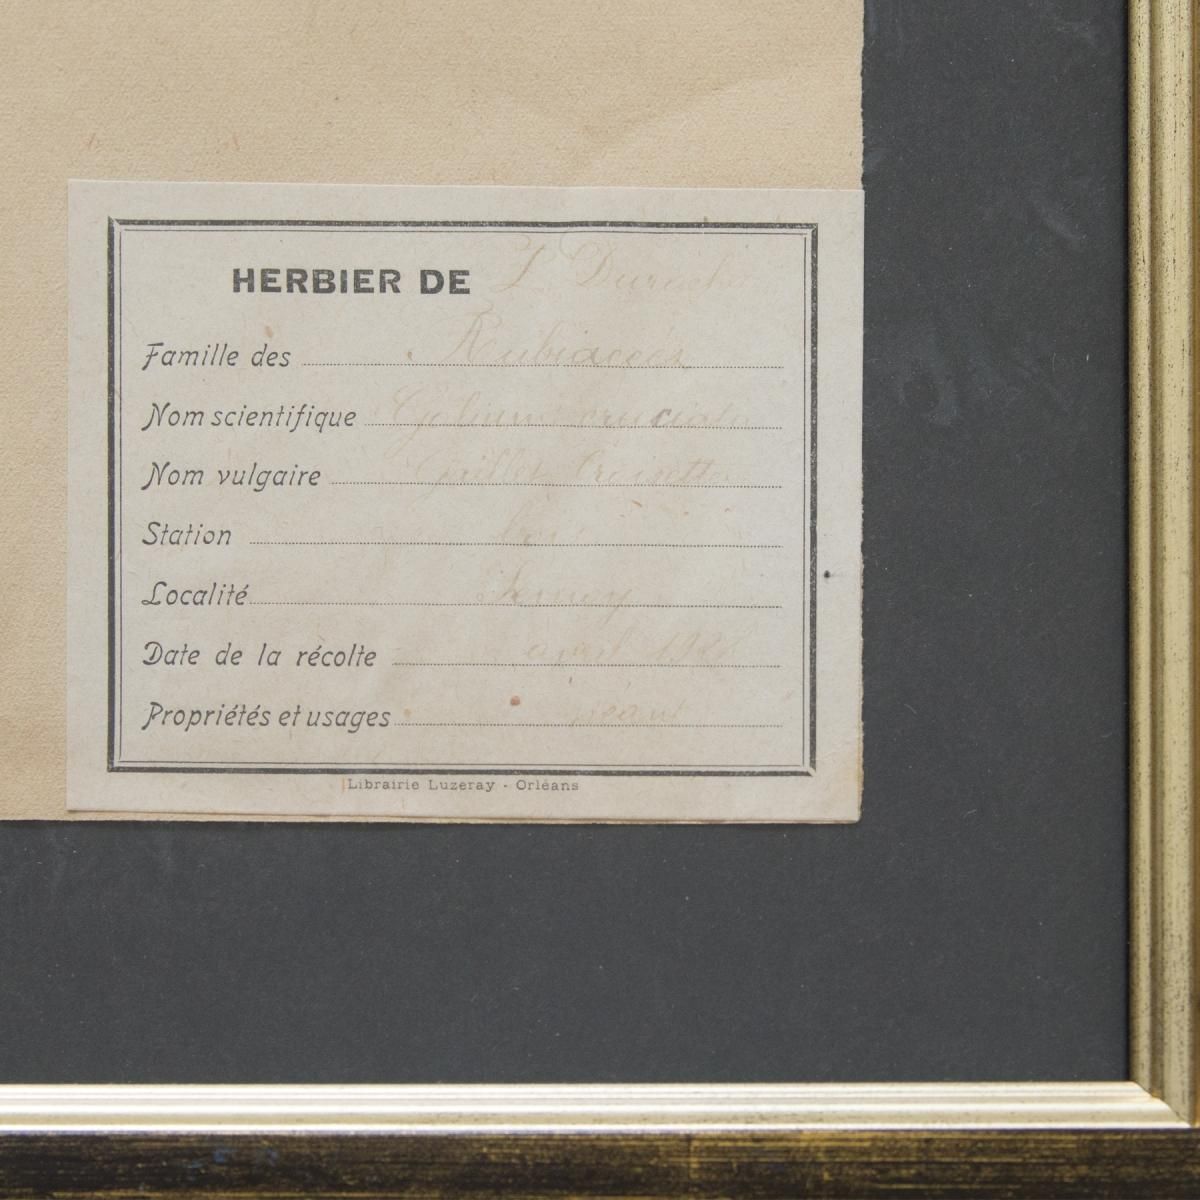 HERBIER DE
Famille des Rubiacées
Nom scientifique Galium cruciata
Nom vulgaire Croisette
Station
Localité
Date de la récolte avril
Propriétés et usages néant
Librairie Luzeray - Orléans